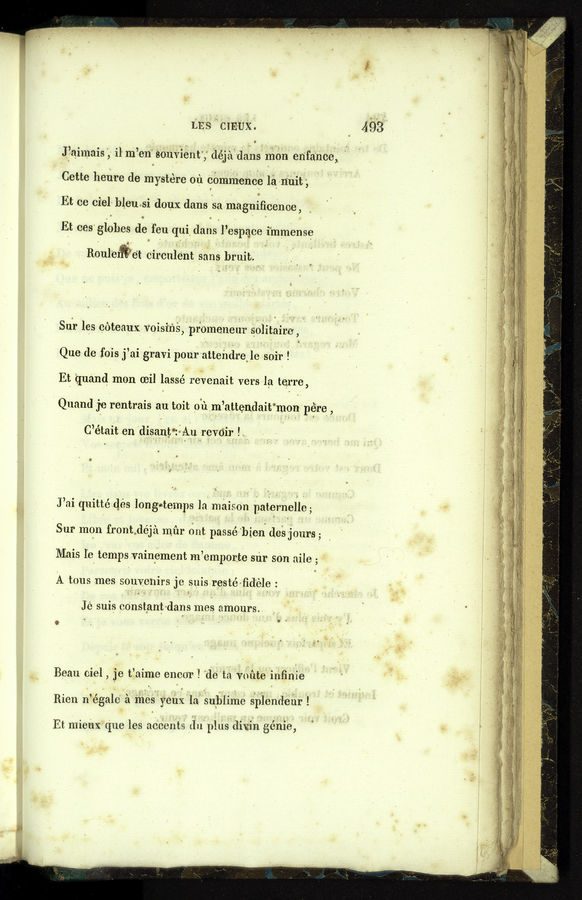 LES CIEUX. 493
J'aimais, il m'en souvient, déjà dans mon enfance,
Cette heure de mystère où commence la nuit,
Et ce ciel bleu si doux dans sa magnificence,
Et ces globes de feu qui dans l'espace immense
Roulent et circulent sans bruit.
Sur les côteaux voisins, promeneur solitaire,
Que de fois j'ai gravi pour attendre le soir !
Et quand mon œil lassé revenait vers la terre,
Quand je rentrais au toit où m'attendait mon père,
C'était en disant : Au revoir !
J'ai quitté dès long-temps la maison paternelle ;
Sur mon front déjà mûr ont passé bien des jours ;
Mais le temps vainement m'emporte sur son aile ;
A tous mes souvenirs je suis resté fidèle :
Je suis constant dans mes amours.
Beau ciel, je t'aime encor ! de ta voûte infinie
Rien n'égale à mes yeux la sublime splendeur !
Et mieux que les accents du plus divin génie,